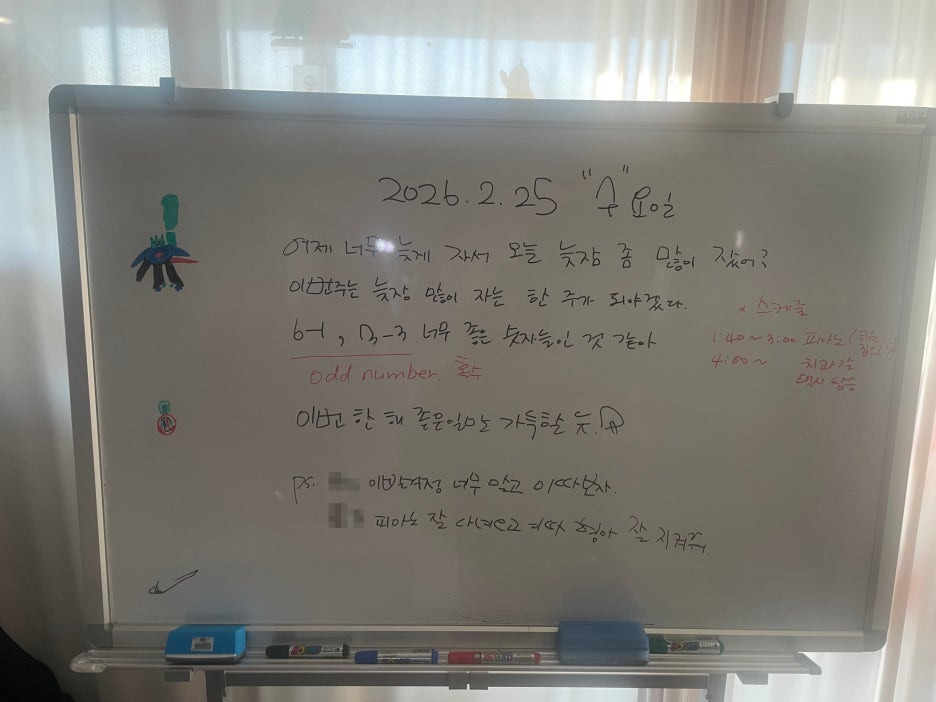 2026.2.25 "수"요일
어제 너무 늦게 자서 오늘 늦잠 좀 많이 잤어?
이번주는 늦잠 많이 자는 한 주가 되야겠다.
6-1, 3-3 너무 좋은 숫자들인 것 같아
odd number. 홀수.
이번 한 해 좋은일만 가득할 듯.
ps. 걱정 너무 말고 이따보자.
피아노 잘 다녀오고 이따 형아 잘 지켜줘.
* 스케줄
1:40 ~ 3:00 피아노
4:00 ~ 치과
택시 탑승